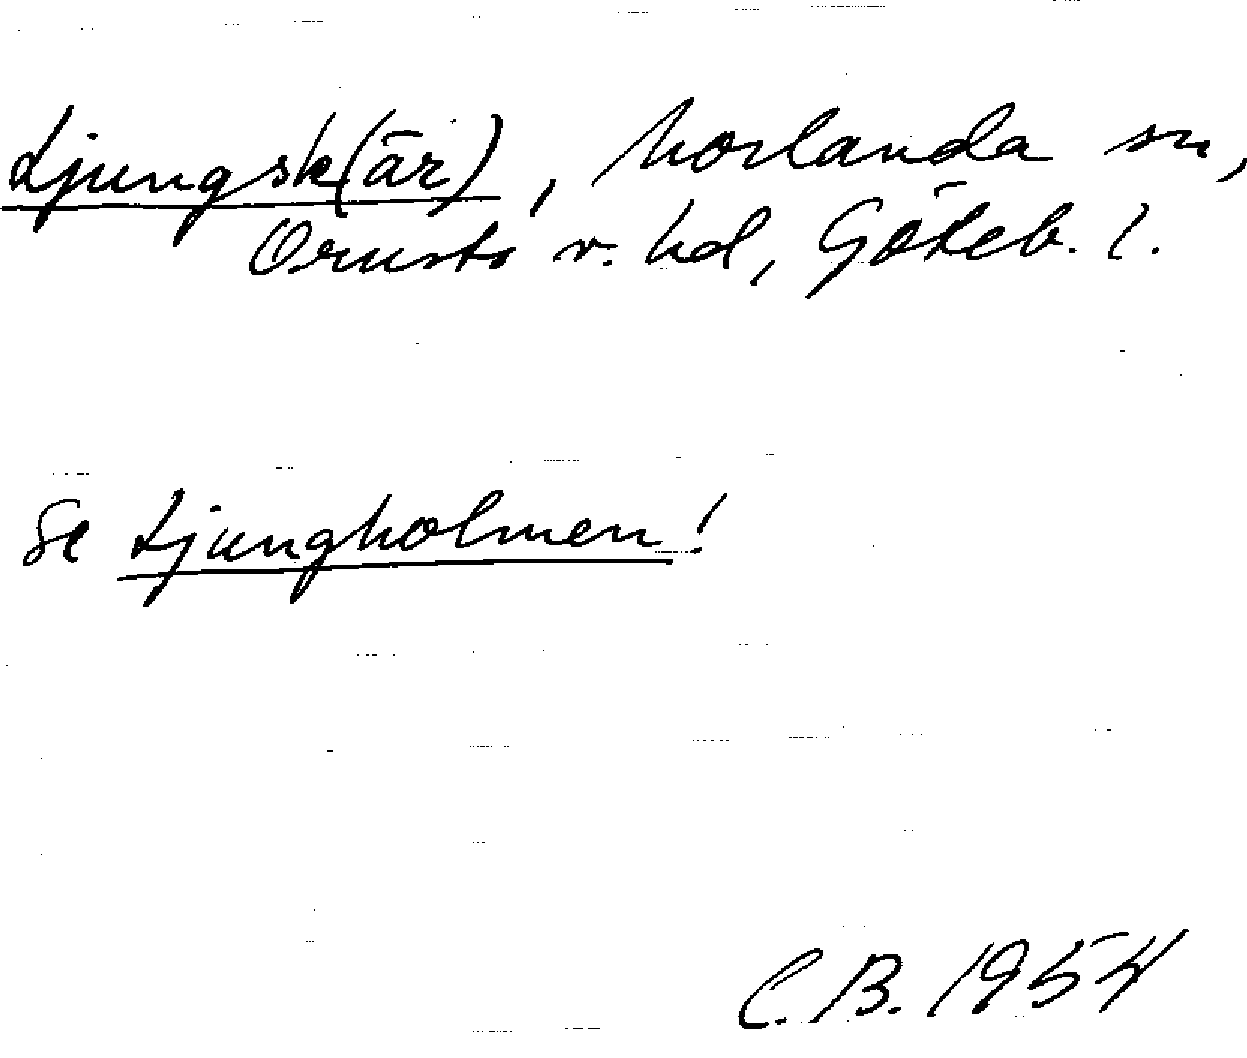 Ljungsk(är), Morlanda sn,
Orusts v. hd, Göteb. l.
Se Ljungholmen!
C.B. 1954